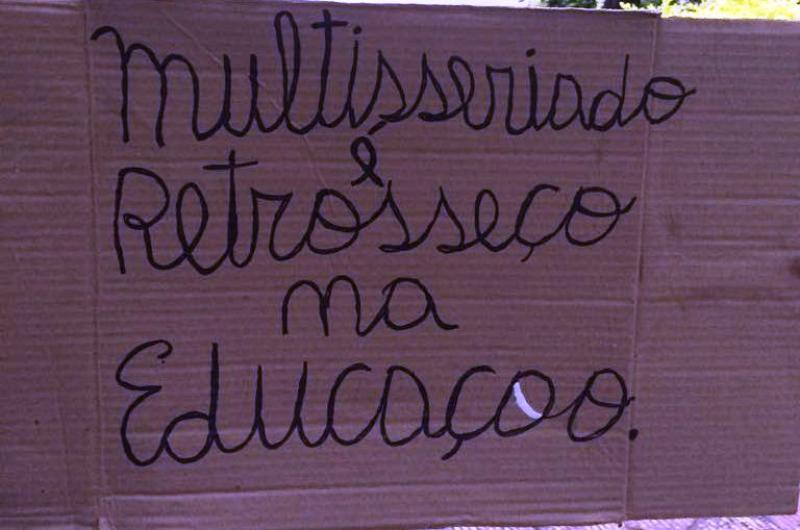 Multisseriado
é
Retrósseço
na
Educaçoo.